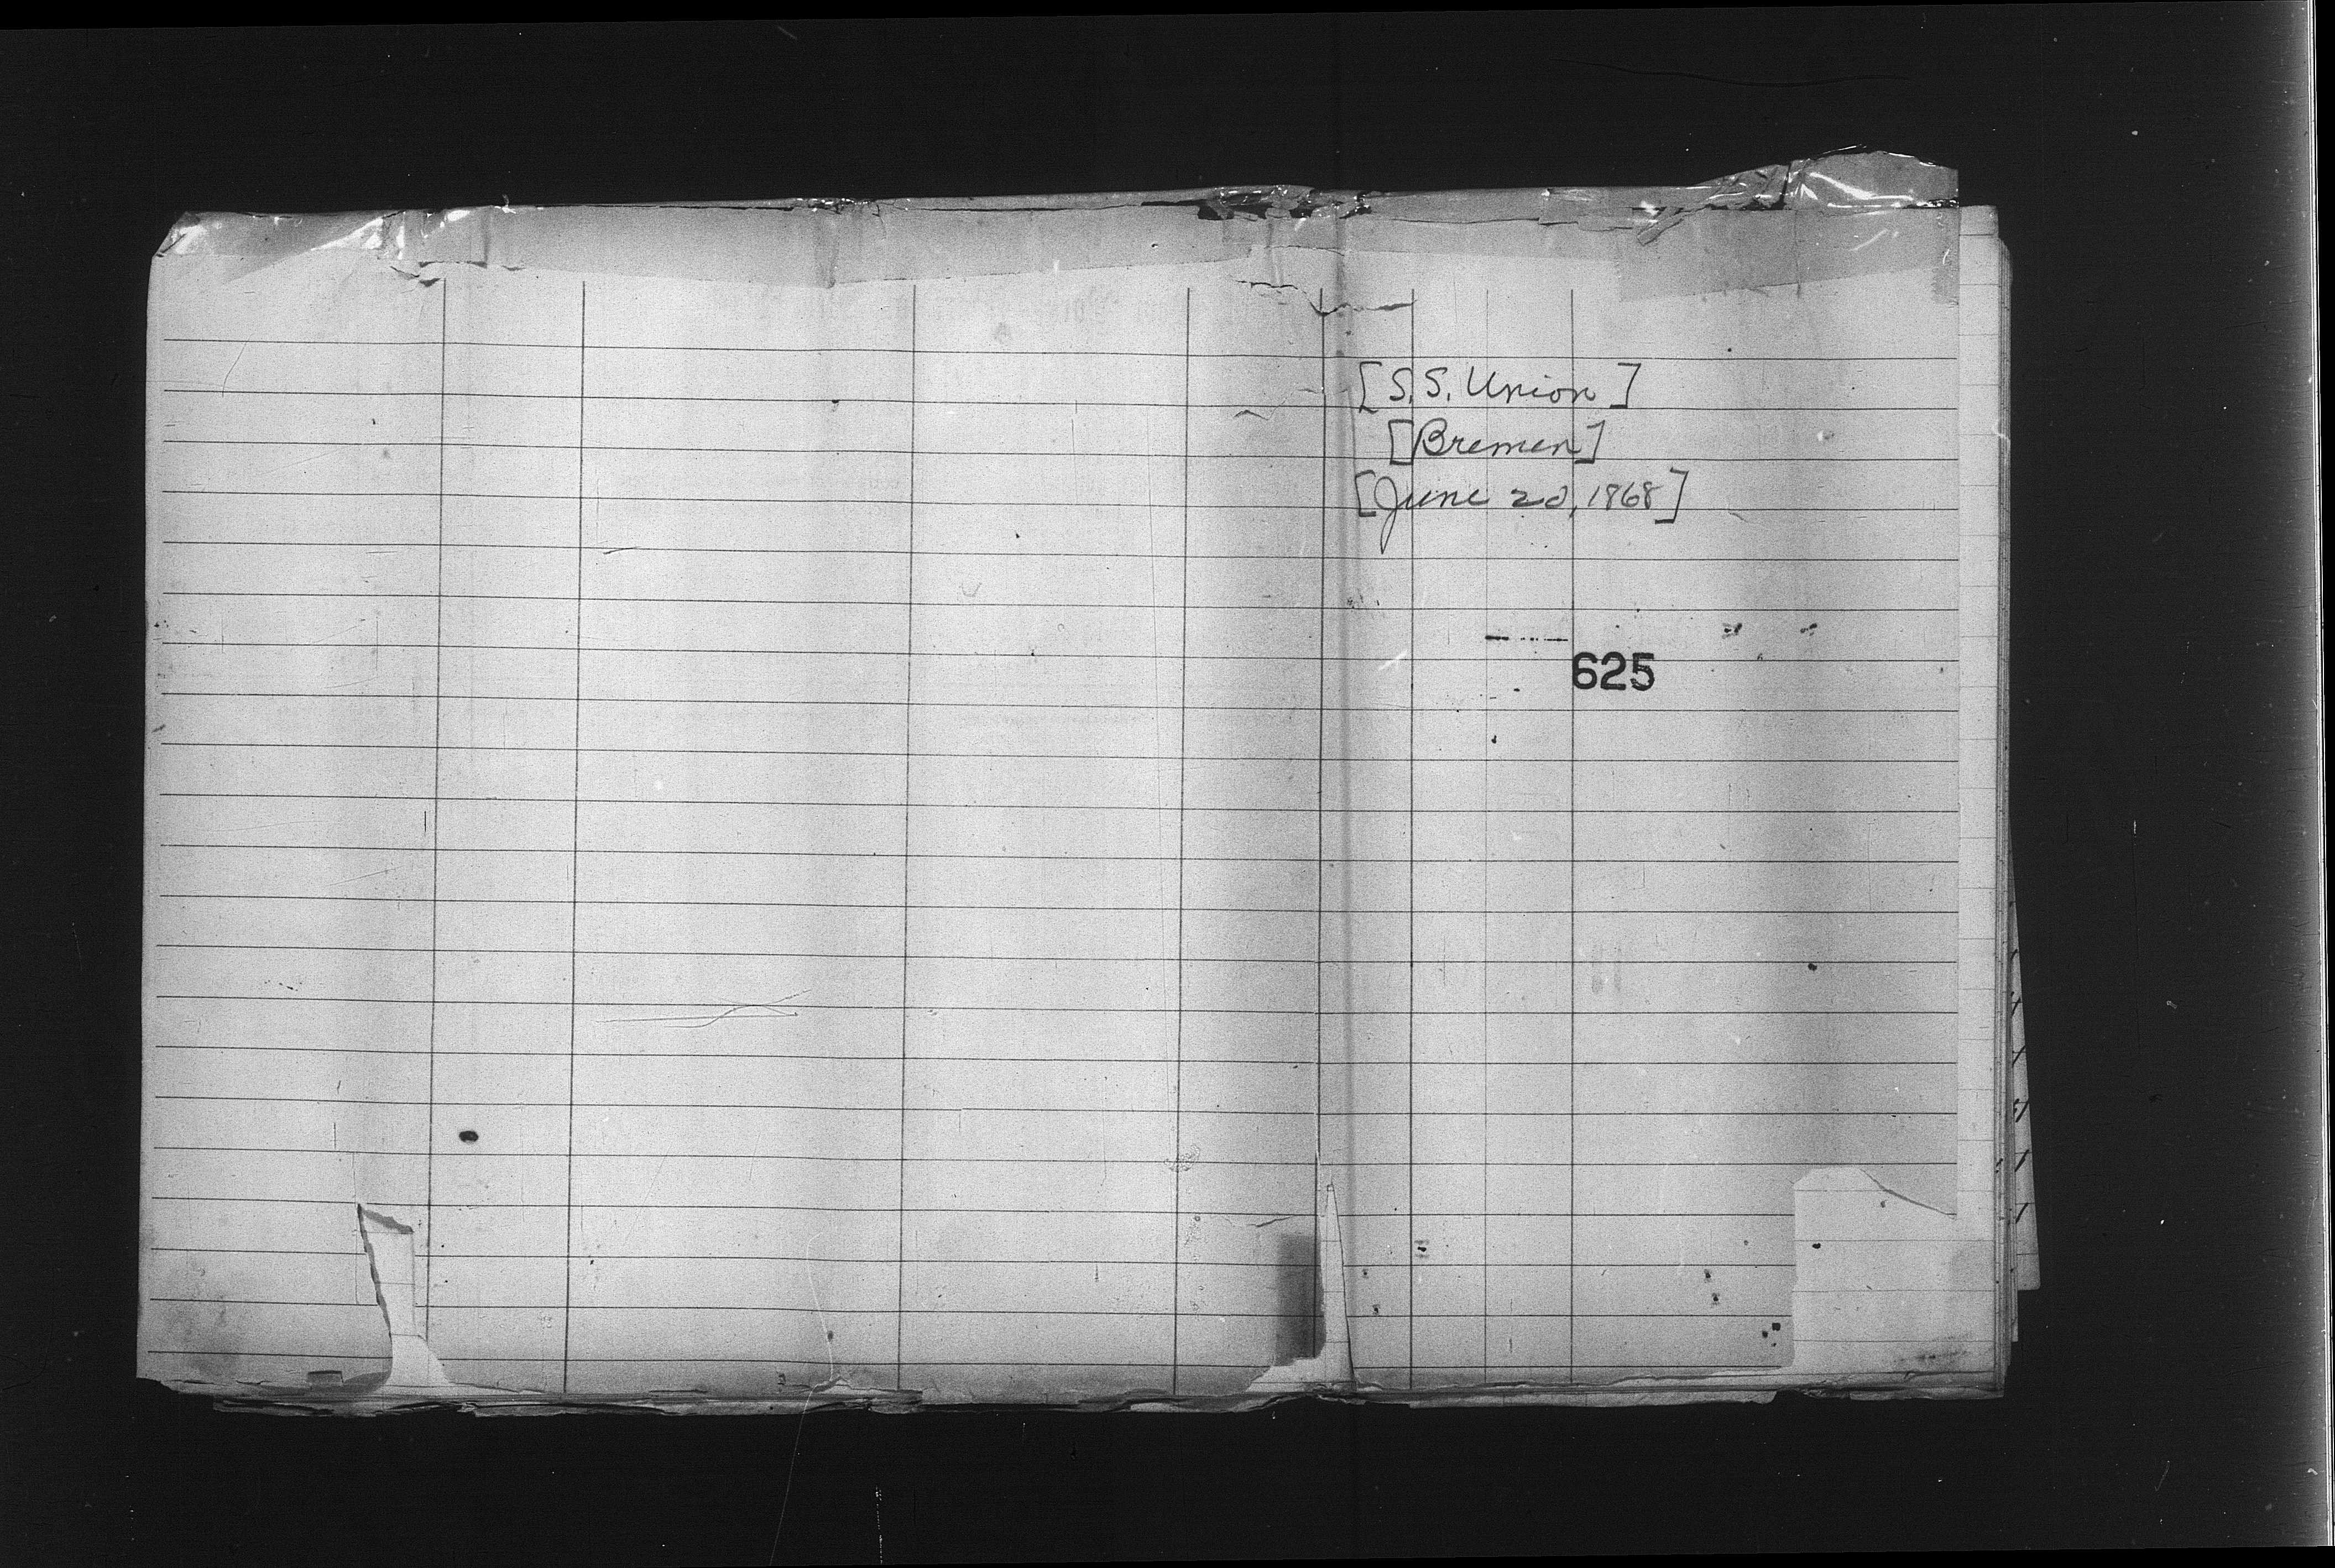 [S.S. Union]
[Bremen]
[June 20, 1868]
625